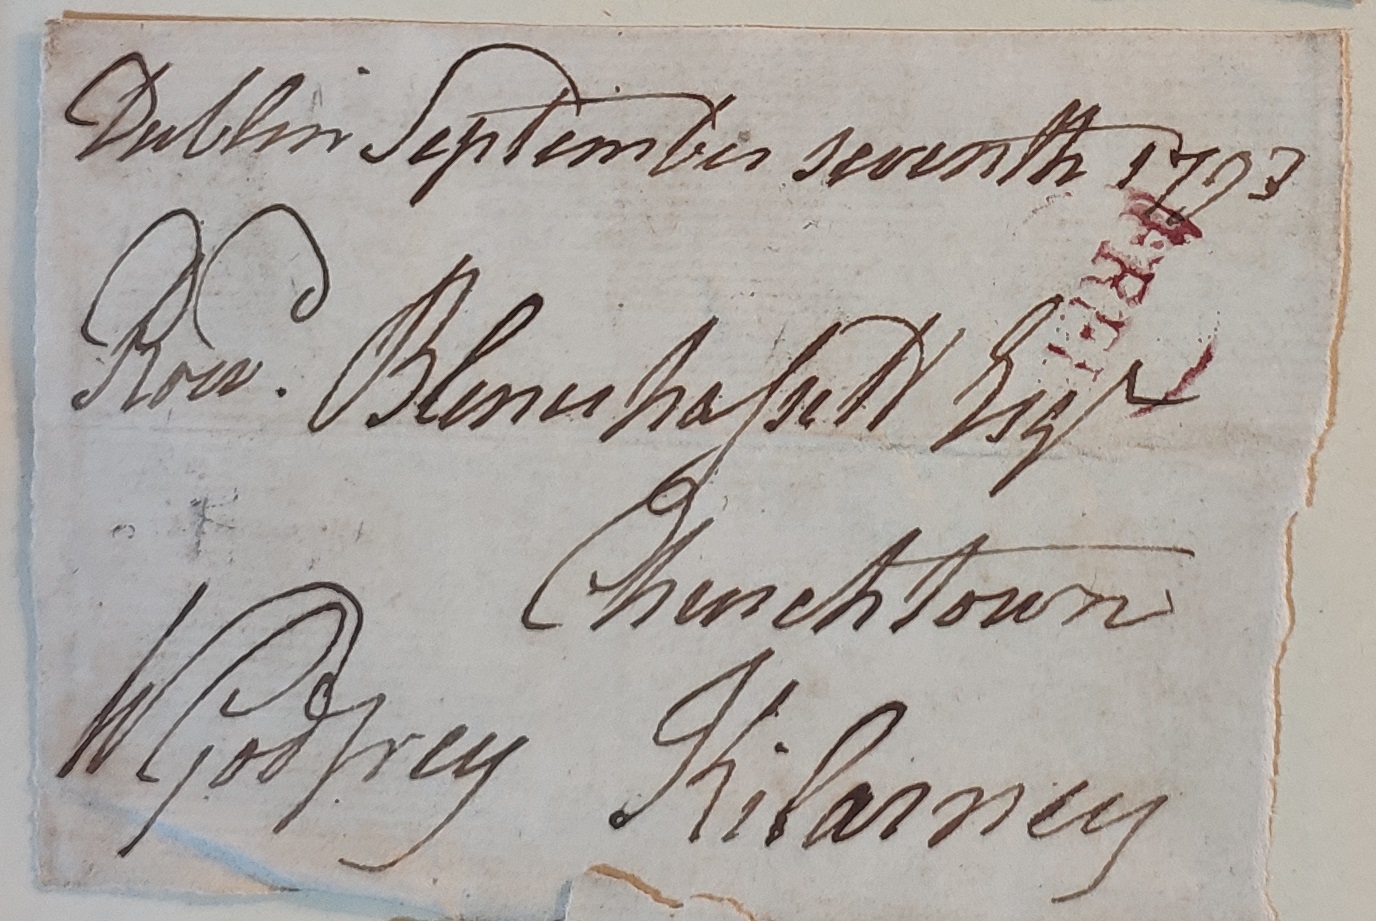 Dublin September seventh 1793
FREE
Row. Blenerhassett Esqr
Churchtown
W Godfrey Kilarney